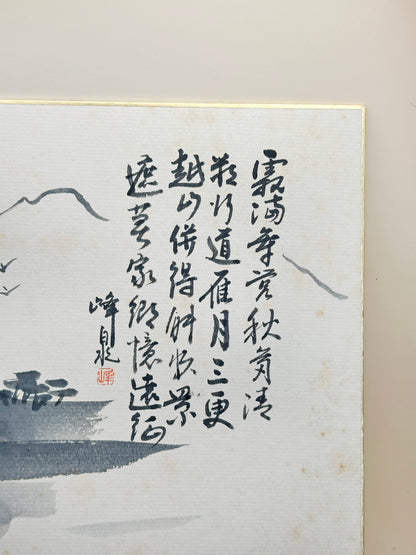 霜満軍営秋気清
数行過雁月三更
越山併得能州景
遮莫家郷憶遠征
峰泉